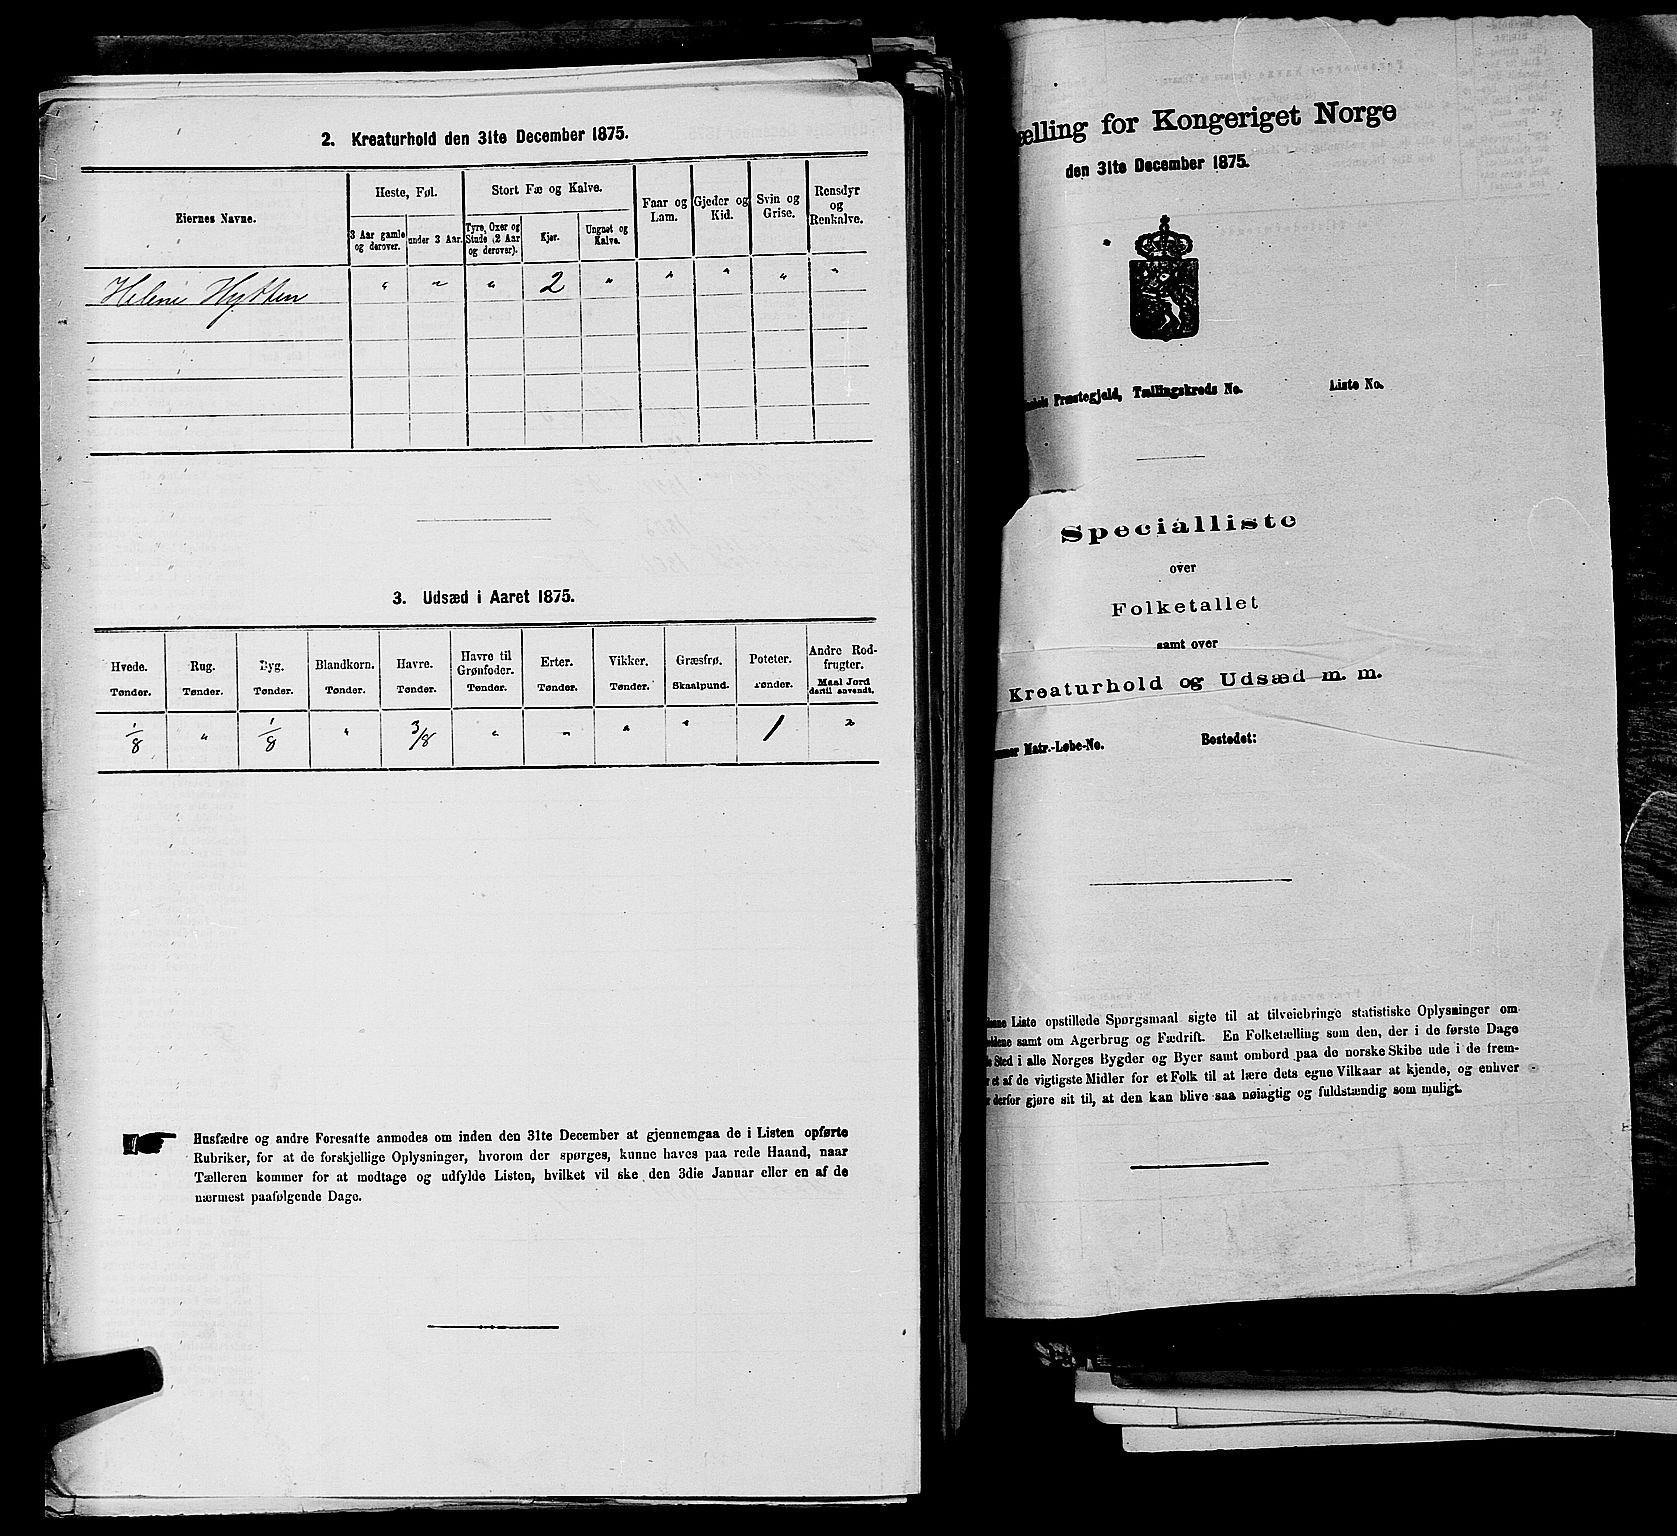 2. Kreaturhold den 31te December 1875.
Eiernes Navne.
Heste, Føl.
3 Aar gamle og derover.
under 3 Aar.
Stort Fæ og Kalve.
Tyre, Oxer og Stude (2 Aar og derover).
Kjør.
Ungnøt og Kalve.
Faar og Lam.
Gjeder og Kid.
Svin og Grise.
Rensdyr og Renkalve.
Helene Hytten " " " 2 " " " " "
3. Udsæd i Aaret 1875.
Hvede. Rug. Byg. Blandkorn. Havre. Havre til Grønfoder. Erter. Vikker. Græsfrø. Poteter. Andre Rodfrugter.
Tønder. Tønder. Tønder. Tønder. Tønder. Tønder. Tønder. Tønder. Skaalpund. Tønder. Maal Jord dertil anvendt.
1/8 " 1/8 " 3/8 " " " " 1 "
Husfædre og andre Foresatte anmodes om inden den 31te December at gjennemgaa de i Listen opførte
Rubriker, for at de forskjellige Oplysninger, hvorom der spørges, kunne haves paa rede Haand, naar
Tælleren kommer for at modtage og udfylde Listen, hvilket vil ske den 3die Januar eller en af de
nærmest paafølgende Dage.
ælling for Kongeriget Norge
den 31te December 1875.
Præstegjeld, Tællingskreds No. Liste No.
Specialliste
over
Folketallet
samt over
Kreaturhold og Udsæd m. m.
Matr.-Løbe-No. Bostedet:
Liste opstillede Spørgsmaal sigte til at tilveiebringe statistiske Oplysninger om
samt om Agerbrug og Fædrift. En Folketælling som den, der i de første Dage
Sted i alle Norges Bygder og Byer samt ombord paa de norske Skibe ude i de frem-
et af de vigtigste Midler for et Folk til at lære dets egne Vilkaar at kjende, og enhver
derfor gjøre sit til, at den kan blive saa nøiagtig og fuldstændig som muligt.